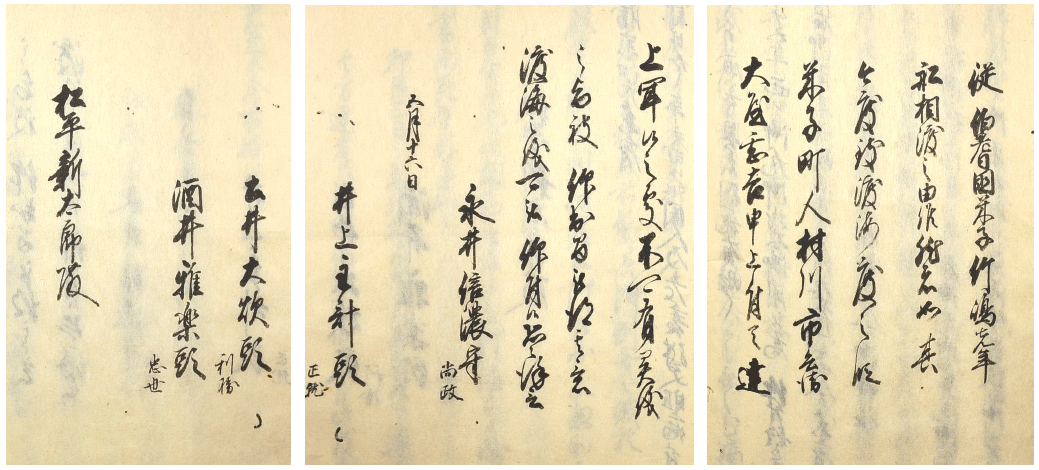 従伯耆国米子竹嶋先年
船相渡之由候然者如其
今度致渡海度之段
米子町人村川市兵衛
大屋甚吉申上付而達
上聞候之処不可有異儀
之旨被仰出間被得其意
渡海之儀可被仰付候恐々謹言
五月十六日
永井信濃守
尚政
井上主計頭
正就
土井大炊頭
利勝
酒井雅楽頭
忠世
松平新太郎殿